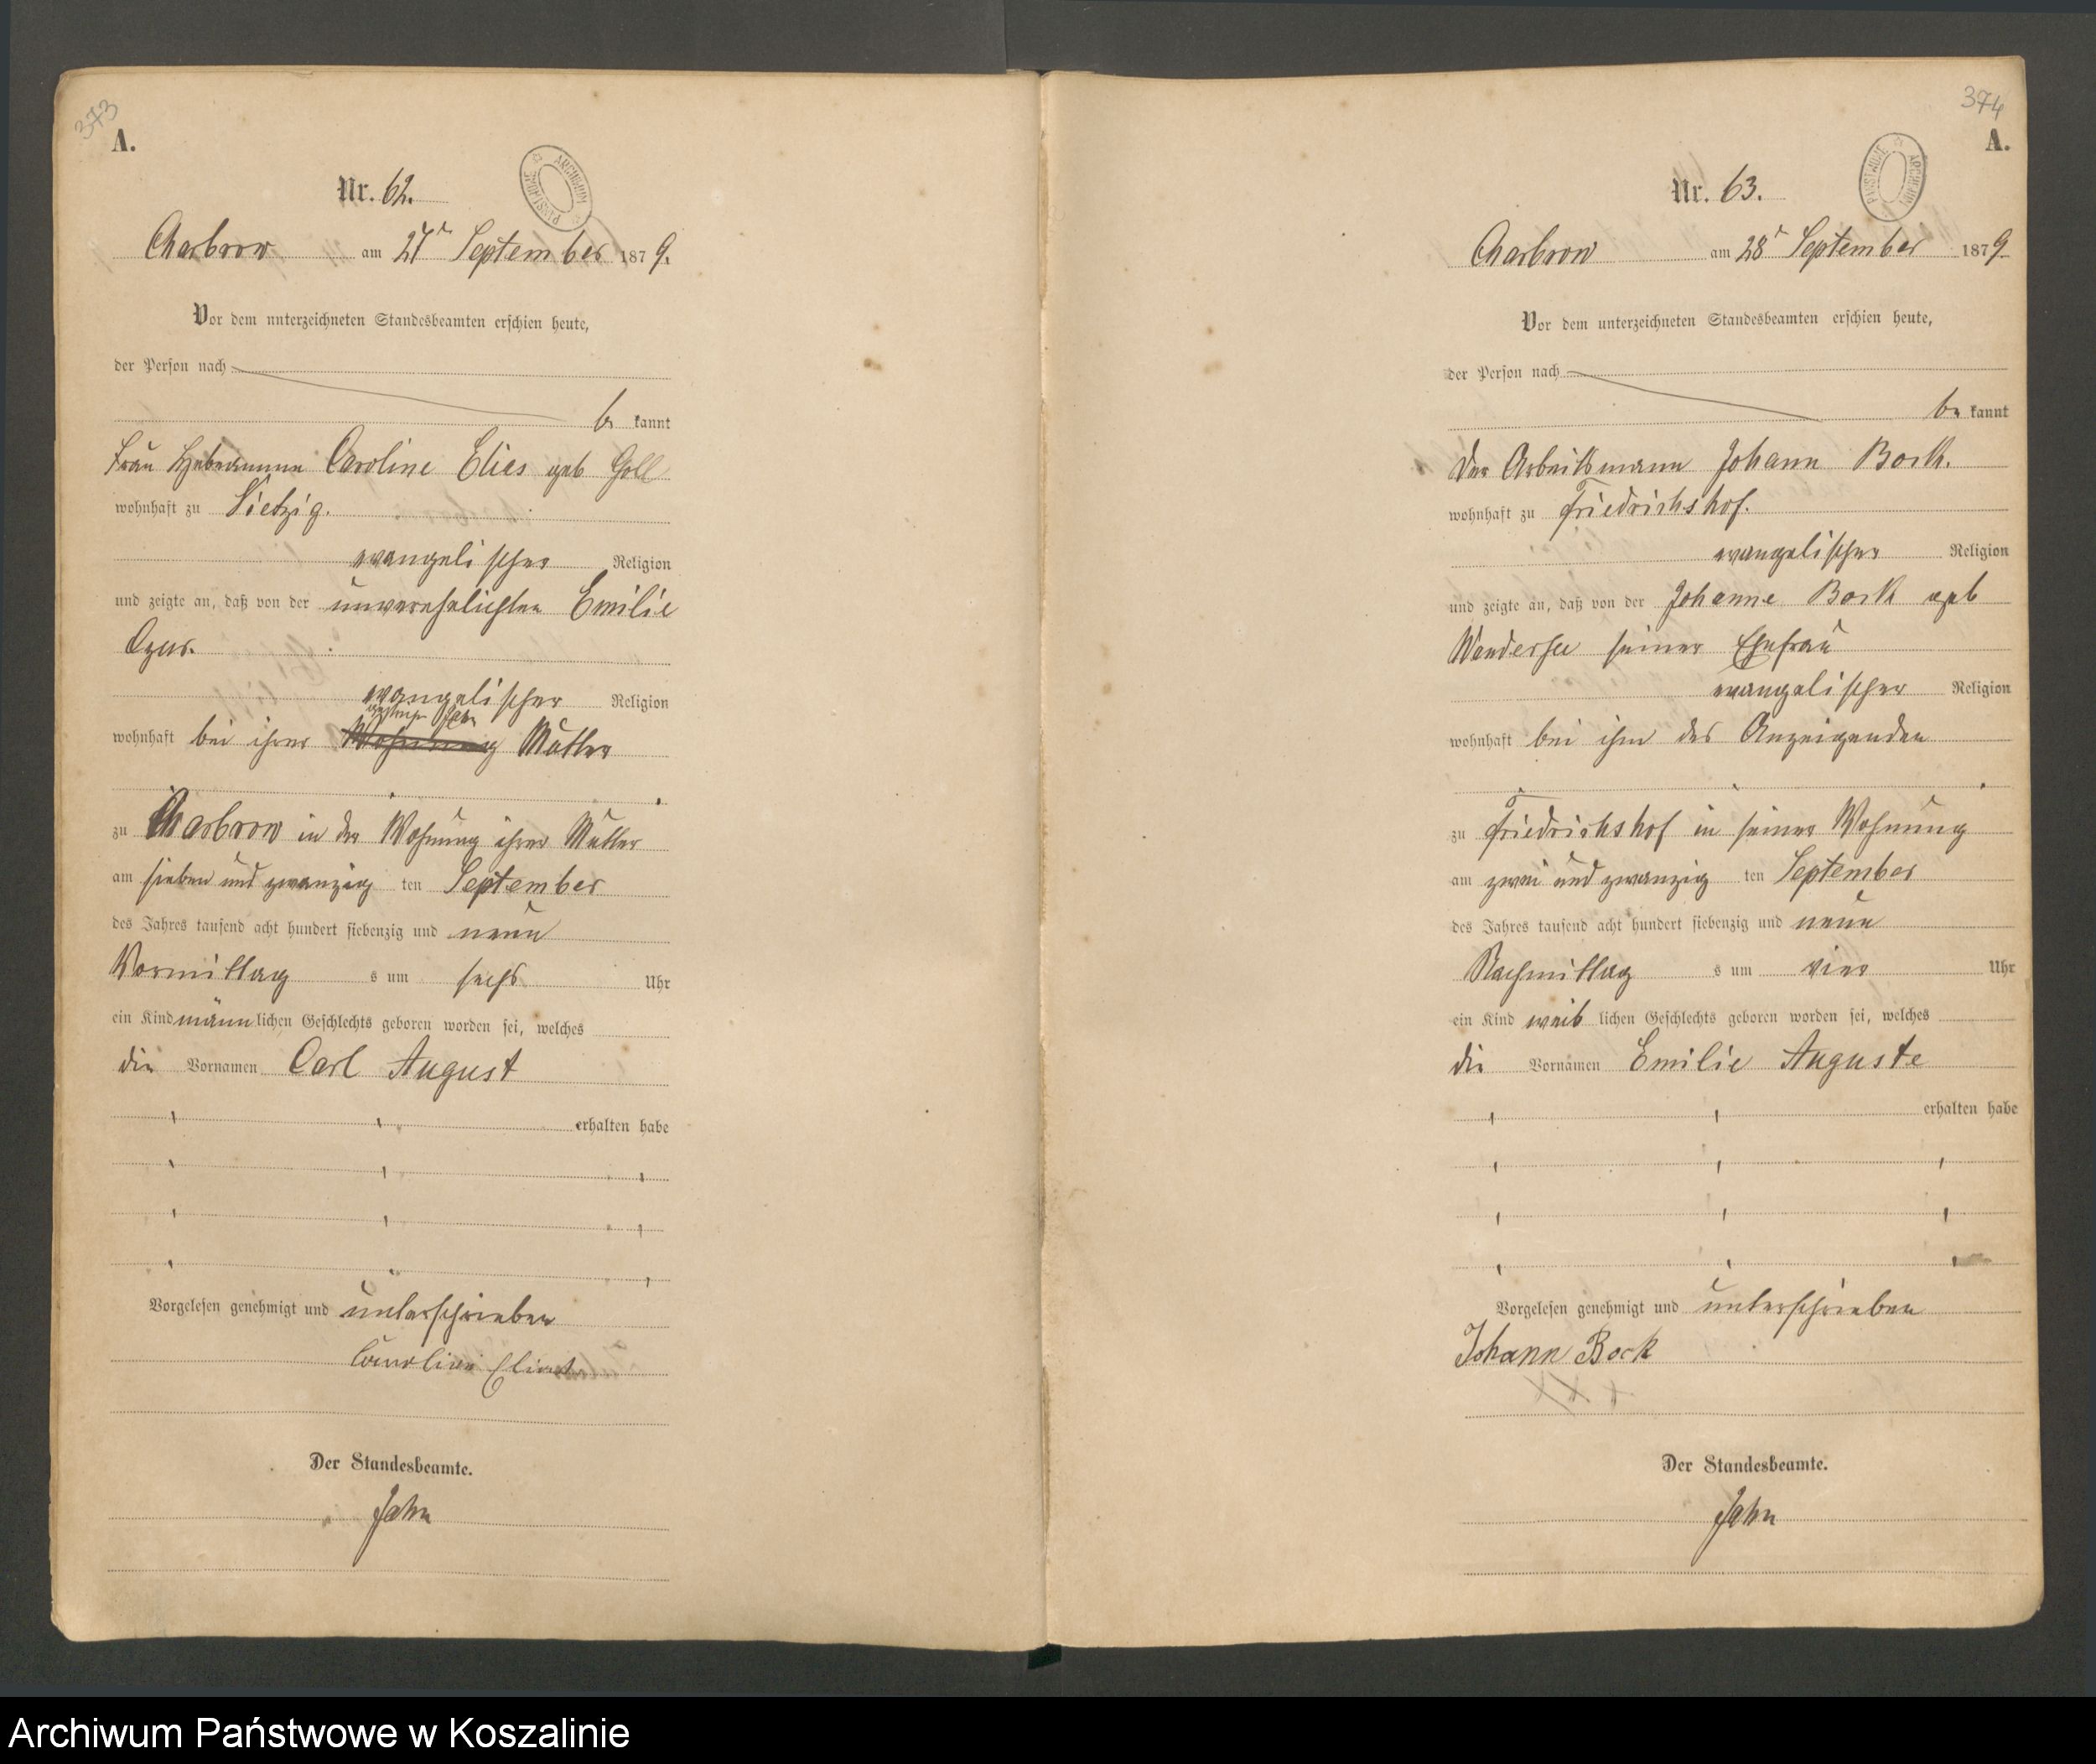 373
A.
ARCHIWUM PAŃSTWOWE
Nr. 62.
Charbrow am 27ᵗ September 1879.
Vor dem unterzeichneten Standesbeamten erschien heute,
der Person nach
be kannt
Frau Hebeamme Caroline Elias geb Goll
wohnhaft zu Vietzig.
evangelischer Religion
und zeigte an, daß von der unverehelichten Emilie
Czus.
evangelischer Religion
Jahn
wohnhaft bei ihrer Wohnung Mutter
zu Charbrow in der Wohnung ihrer Mutter
am sieben und zwanzig ten September
des Jahres tausend acht hundert siebenzig und neun
Vormittag s um sechs Uhr
ein Kind männlichen Geschlechts geboren worden sei, welches
die Vornamen Carl August
erhalten habe
Vorgelesen genehmigt und unterschrieben
Caroline Elias
Der Standesbeamte.
Jahn
374
A.
ARCHIWUM PAŃSTWOWE
Nr. 63.
Charbrow am 28ᵗ September 1879
Vor dem unterzeichneten Standesbeamten erschien heute,
der Person nach
be kannt
Der Arbeitsmann Johann Bock.
wohnhaft zu Friedrichshof.
evangelischer Religion
und zeigte an, daß von der Johanne Bock geb
Wandersee seiner Ehefrau
evangelischer Religion
wohnhaft bei ihm des Anzeigenden
zu Friedrichshof in seiner Wohnung
am zwei und zwanzig ten September
des Jahres tausend acht hundert siebenzig und neun
Nachmittag s um vier Uhr
ein Kind weib lichen Geschlechts geboren worden sei, welches
die Vornamen Emilie Auguste
erhalten habe
Vorgelesen genehmigt und unterschrieben
Johann Bock
Der Standesbeamte.
Jahn
Archiwum Państwowe w Koszalinie